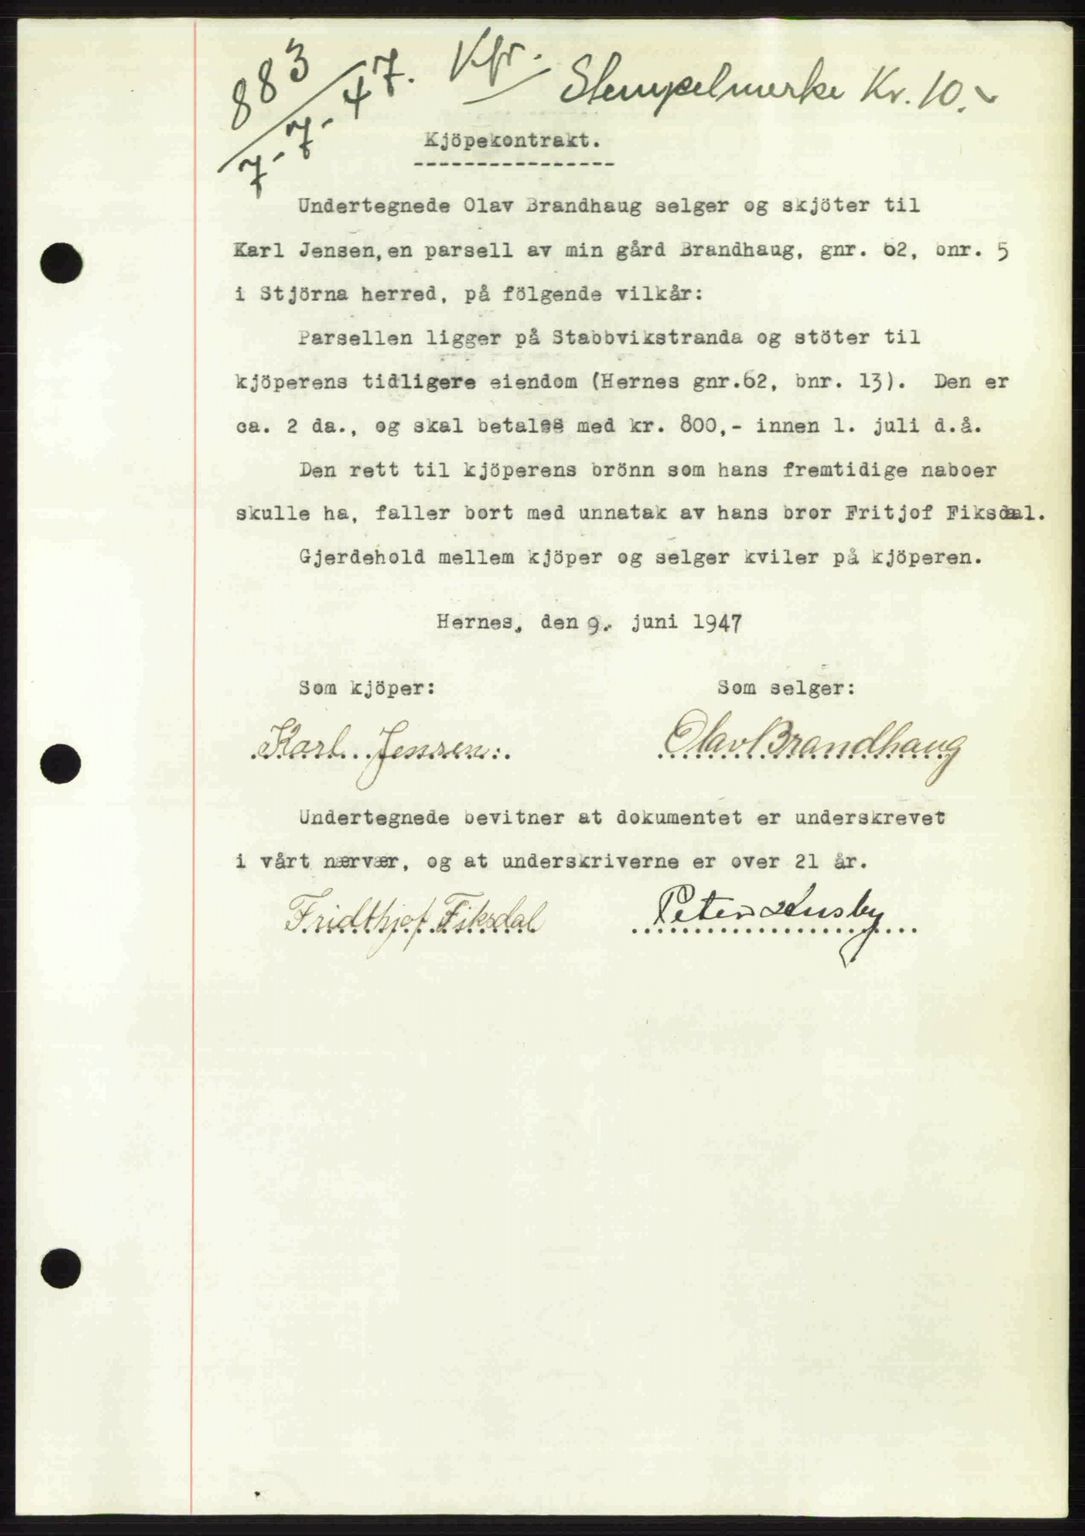 883
7-7-47. Kfr. Stempelmerke Kr. 10.-
Kjöpekontrakt.
Undertegnede Olav Brandhaug selger og skjöter til
Karl Jensen, en parsell av min gård Brandhaug, gnr. 62, bnr. 5
i Stjörna herred, på fölgende vilkår:
Parsellen ligger på Stabbvikstranda og stöter til
kjöperens tidligere eiendom (Hernes gnr.62, bnr. 13). Den er
ca. 2 da., og skal betales med kr. 800,- innen 1. juli d.å.
Den rett til kjöperens brönn som hans fremtidige naboer
skulle ha, faller bort med unnatak av hans bror Fritjof Fiksdal.
Gjerdehold mellem kjöper og selger kviler på kjöperen.
Hernes, den 9. juni 1947
Som kjöper: Som selger:
Karl Jensen. Olav Brandhaug
Undertegnede bevitner at dokumentet er underskrevet
i vårt nærvær, og at underskriverne er over 21 år.
Fridthjof Fiksdal Peter Husby